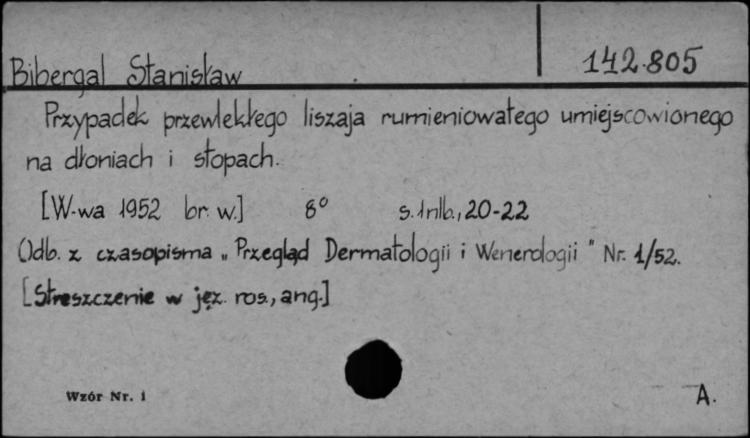 Bibergal Stanisław
142.805
Przypadek przewlekłego liszaja rumieniowatego umiejscowionego
na dłoniach i stopach.
[W-wa 1952 br. w.] 8° s. 1nlb., 20-22
Odb. z czasopisma „Przegląd Dermatologii i Wenerologii" Nr. 1/52.
[Streszczenie w jęz. ros., ang.]
Wzór Nr. 1
A.